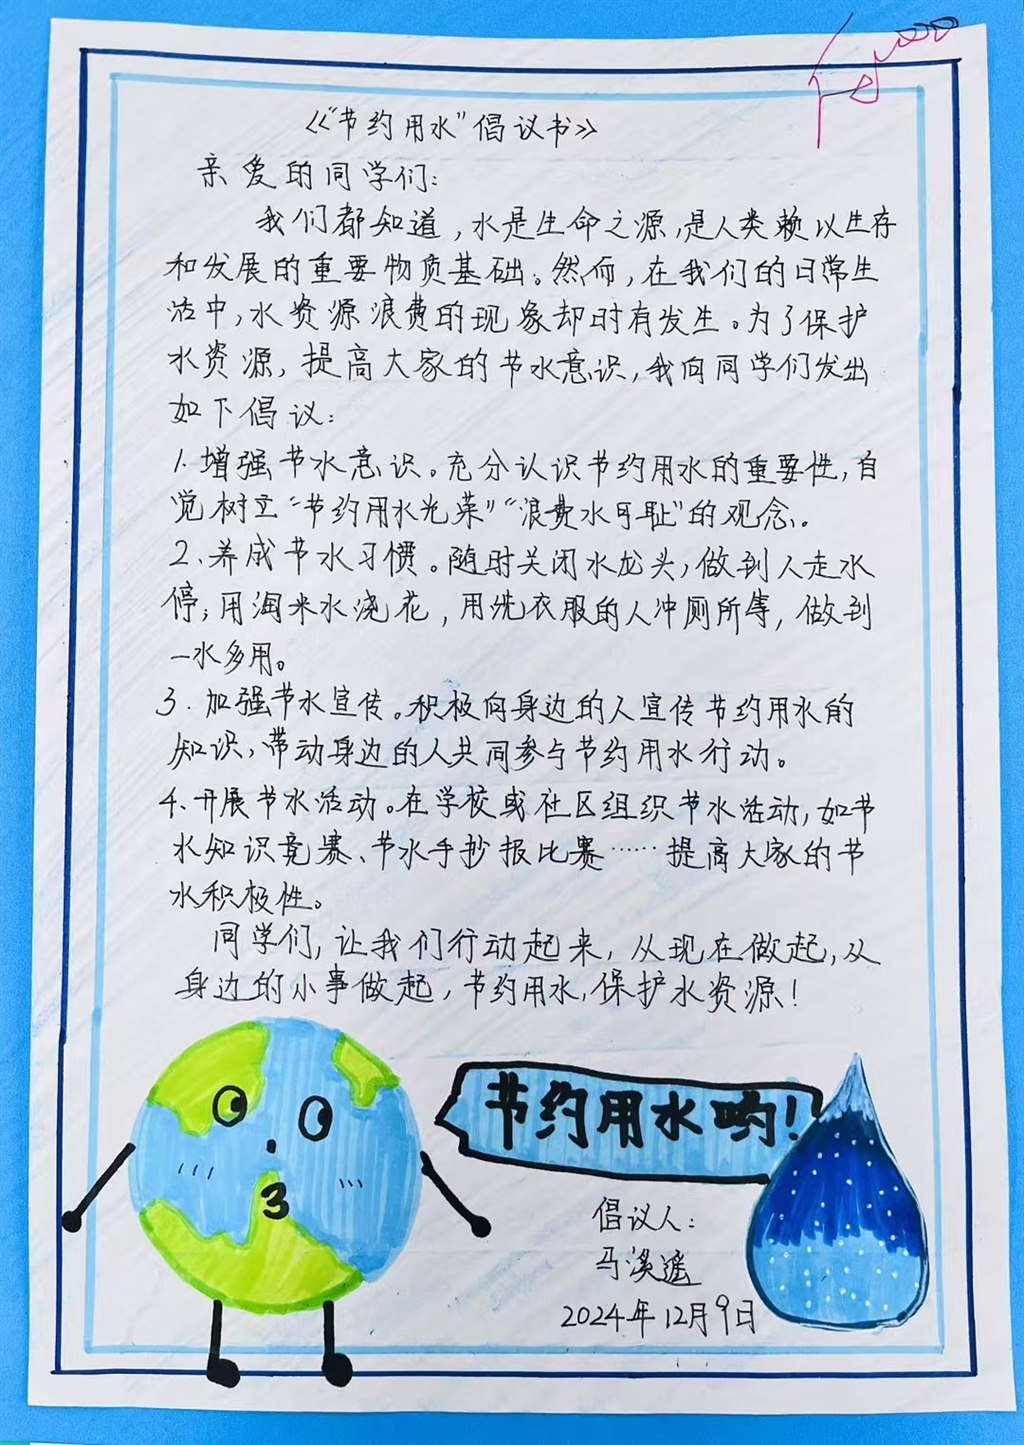 《“节约用水”倡议书》
亲爱的同学们：
我们都知道，水是生命之源，是人类赖以生存
和发展的重要物质基础。然而，在我们的日常生
活中，水资源浪费的现象却时有发生。为了保护
水资源，提高大家的节水意识，我向同学们发出
如下倡议：
1.增强节水意识。充分认识节约用水的重要性，自
觉树立“节约用水光荣”“浪费水可耻”的观念。
2、养成节水习惯。随时关闭水龙头，做到人走水
停；用淘米水浇花，用洗衣服的人冲厕所等，做到
一水多用。
3.加强节水宣传。积极向身边的人宣传节约用水的
知识，带动身边的人共同参与节约用水行动。
4、开展节水活动。在学校或社区组织节水活动，如节
水知识竞赛、节水手抄报比赛……提高大家的节
水积极性。
同学们，让我们行动起来，从现在做起，从
身边的小事做起，节约用水，保护水资源！
节约用水哟！
倡议人：
马溪遥
2024年12月9日